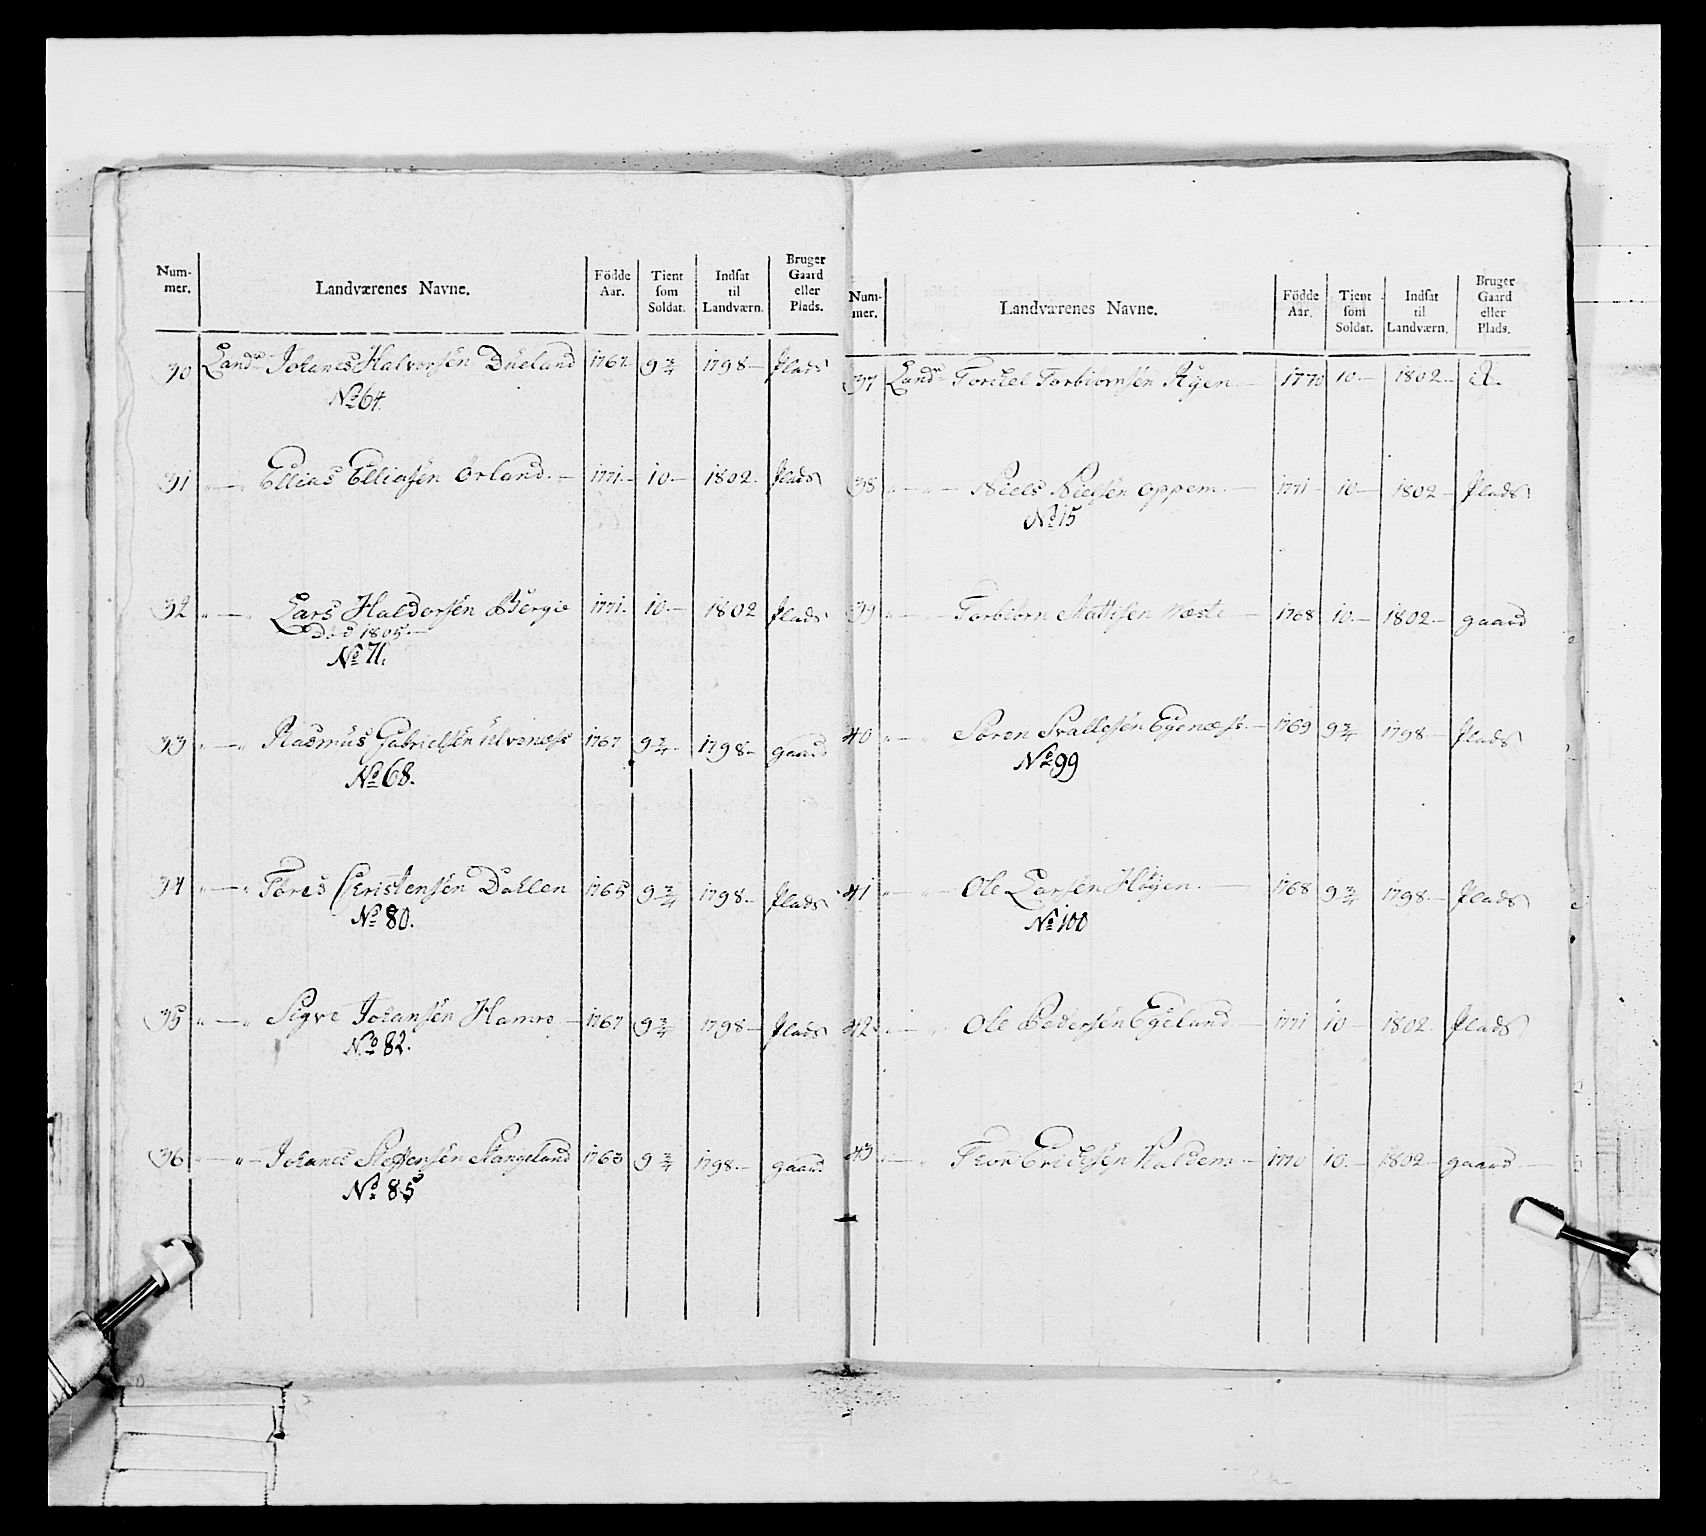 Num-mer. Landværenes Navne. Födde Aar. Tient som Soldat. Indsat til Landværn. Bruger Gaard eller Plads.
30 Landv Johanes Halvorsén Dueland 1767 9 3/4 1798 – Plads
No 64.
31 " — " Ellias Elliasén Örland. – 1771. – 10 – 1802. Plads
32 " — " Lars Haldorsén Bergie 1771. 10. – 1802 Plads
Död 1805. –
No 71.
33 " — " Rasmus Gabrielsén 1767 9 3/4 – 1798 – gaard
No 68.
34 " — " Töres Christensén Dahlen 1765 9 3/4 1798. – Plads
No 80.
35 " — " Sigve Johansén Hamre – 1767 9 3/4 1798 – Plads
No 82.
36 " — " Johanes Steffensén Stangeland 1763 9 3/4 1798. – gaard
No 85
Num-mer. Landværenes Navne. Födde Aar. Tient som Soldat. Indsat til Landværn. Bruger Gaard eller Plads.
37 Landv Torchel Torbiornsén – 1770 10 – 1802. –
38 " — " – Niels Nielsén Oppem. – 1771 – 10 – 1802 – Plads
No 15
39 " — " Torbiorn Mattisén Næste – 1768 10. – 1802 – gaard
40 " — " Sören Svallesén Egenæss. – 1769 9 3/4 1798 – Plads
No 99
41 " — " Ole Larsén Höyen. – 1768 9 3/4 1798. – Plads
No 100
42 " — " Ole Pedersén Egeland – 1771 10 – 1802. Plads
43 " — " Thor Erichsén – 1770 10. – 1802 – gaard –